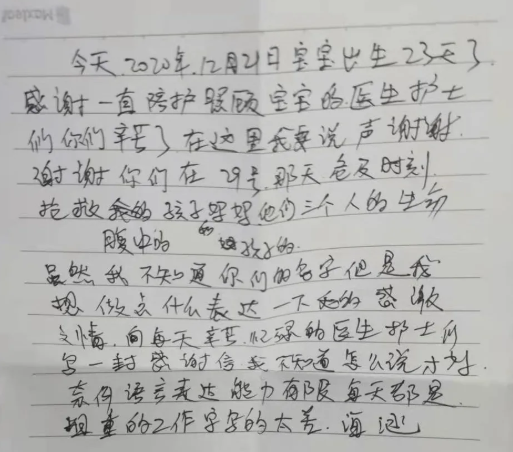 今天.2020年.12月21日宝宝出生23天了.
感谢一直陪护照顾宝宝的医生护士
们你们辛苦了在这里我要说声谢谢.
谢谢你们在29号.那天危及时刻.
抢救我的孩子 他们三个人的生命
腹中的 的 孩子的.
虽然我不知道你们的名字但是我
想做点什么表达一下我的感激
之情.向每天辛苦.忙碌的医生护士们
写一封感谢信.我不知道怎么说才好.
奈何语言表达能力有限每天都是
的工作字写的太差.